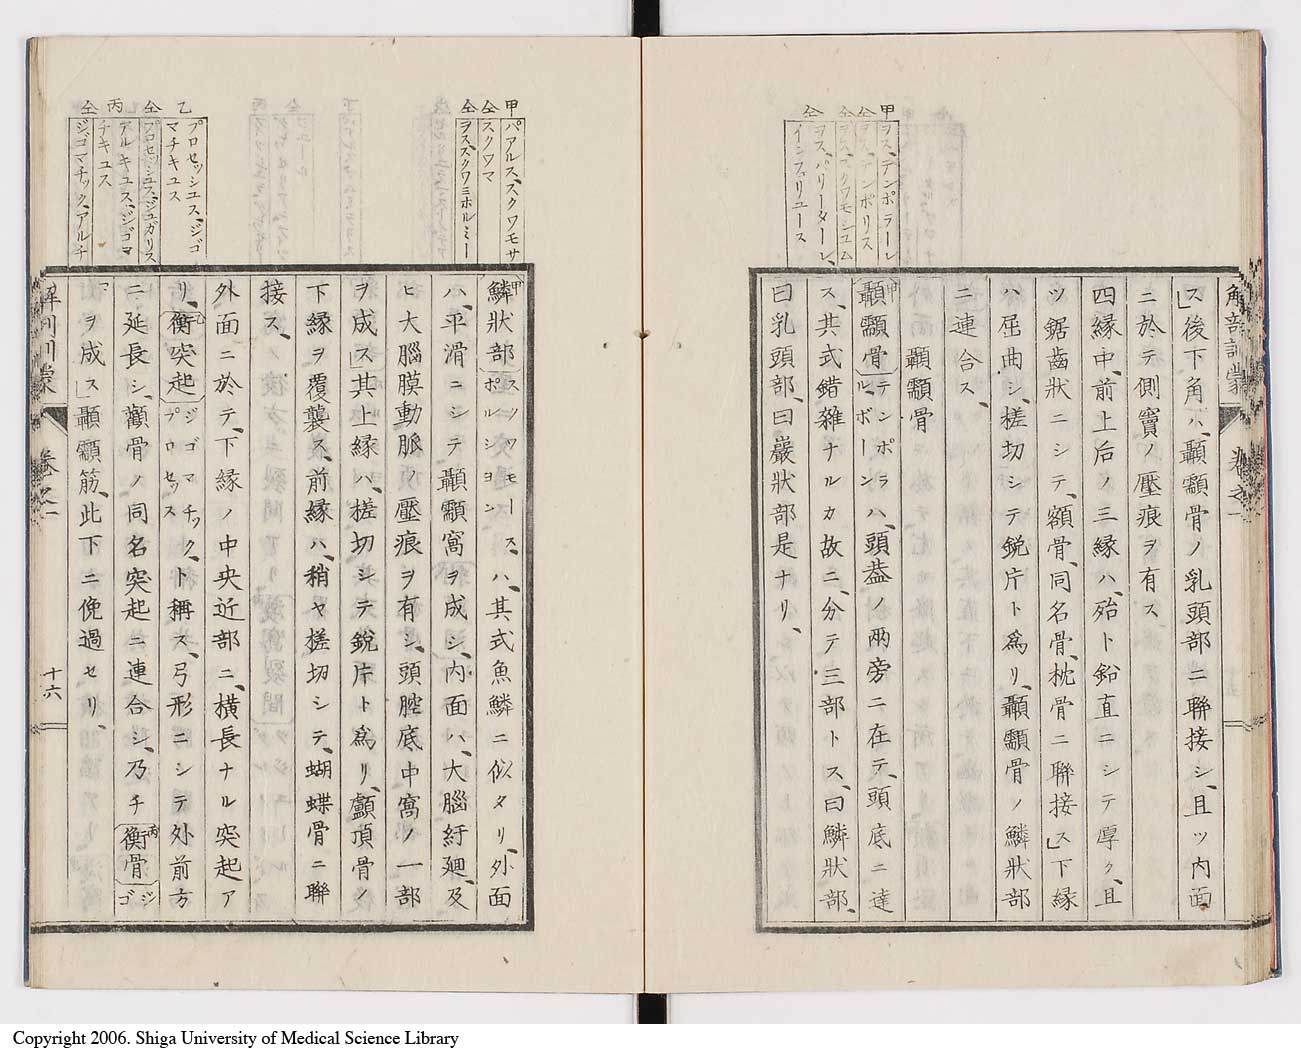 解剖訓蒙
卷之一
甲 ヲス、テンポラーレ
仝 ヲス、テンポリス
仝 ヲス、スクワモシユム
仝 ヲス、パリーターレ、
インフェリユース
ス」後下角ハ、顳顬骨ノ乳頭部ニ聯接シ、且ツ内面
ニ於テ側竇ノ壓痕ヲ有ス
四縁中、前上后ノ三縁ハ、殆ト鉛直ニシテ厚ク、且
ツ鋸齒狀ニシテ、額骨、同名骨、枕骨ニ聯接ス」下縁
ハ屈曲シ、槎切シテ鋭片ト爲リ、顳顬骨ノ鱗狀部
ニ連合ス、
顳顬骨
甲顳顬骨テンポラル、ボーンハ、頭葢ノ兩旁ニ在テ、頭底ニ達
ス、其式錯雜ナルカ故ニ、分テ三部トス、曰鱗狀部、
曰乳頭部、曰巖狀部是ナリ、
甲 パアルス、スクワモサ
仝 スクワマ
仝 ヲス、スクワミホルミー
乙 プロセッシユス、ジゴ
マチキユス
仝 プロセッシユス、ジユガリス
丙 アルキユス、ジゴマ
チキユス
仝 ジゴマチック、アルチ
甲鱗狀部スクワモース、ポルシヨンハ、其式魚鱗ニ似タリ、外面
ハ、平滑ニシテ顳顬窩ヲ成シ、内面ハ、大腦紆廻、及
ヒ大腦膜動脈ノ壓痕ヲ有シ、頭腔底中窩ノ一部
ヲ成ス」其上縁ハ、槎切シテ鋭片ト爲リ、顱頂骨ノ
下縁ヲ覆襲ス、前縁ハ、稍ヤ槎切シテ、蝴蝶骨ニ聯
接ス、
外面ニ於テ、下縁ノ中央近部ニ、橫長ナル突起ア
リ、乙衡突起ジゴマチック、プロセッスト稱ス、弓形ニシテ外前方
ニ延長シ、顴骨ノ同名突起ニ連合シ、乃チ丙衡骨ジゴ
ヲ成ス」顳顬筋、此下ニ俛過セリ、
卷之一
十六